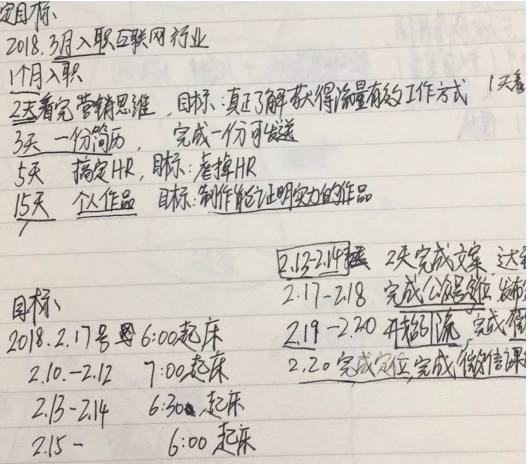 定目标
2018.3月入职互联网行业
1个月入职
2天看完营销思维，目标：真正了解获得流量有效工作方式 1天看
3天 一份简历， 完成一份可发送
5天 搞定HR，目标：虐掉HR
15天 个人作品 目标：制作能证明实力的作品
2.13-2.14 2天完成文案 达
2.17-2.18 完成公众号 发布
2.19-2.20 开始引流，完成
2.20完成定位，完成微信课
目标
2018.2.17号 6:00起床
2.10.-2.12 7:00起床
2.13-2.14 6:30 起床
2.15- 6:00 起床